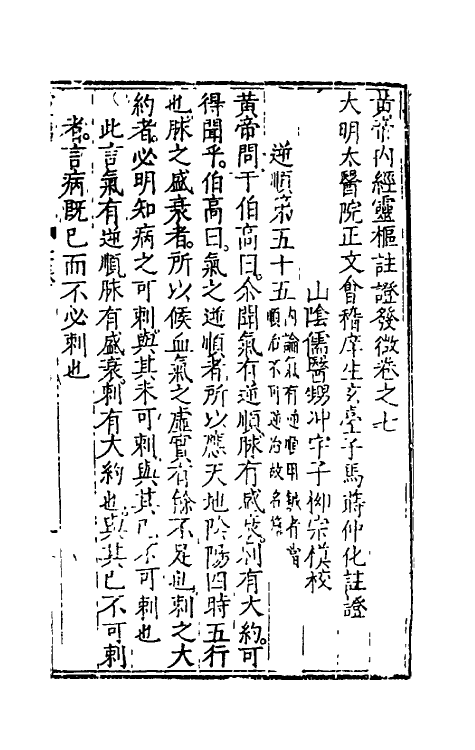 黄帝內經靈樞註證發微卷之七
大明太醫院正文會稽庠生玄臺子馬蒔仲化註證
山陰儒醫甥冲宇子柳宗模校
逆順第五十五
內論氣有逆順用鍼者當
順治不可逆治故名篇
黄帝問于伯高曰。余聞氣有逆順。脉有盛衰。刺有大約。可
得聞乎。伯高曰。氣之逆順者。所以應天地陰陽四時五行
也。脉之盛衰者。所以候血氣之虛實有餘不足也。刺之大
約者。必明知病之可刺。與其未可刺。與其已不可刺也
此言氣有逆順。脉有盛衰。刺有大約也。與其已不可刺
者。言病既已而不必刺也